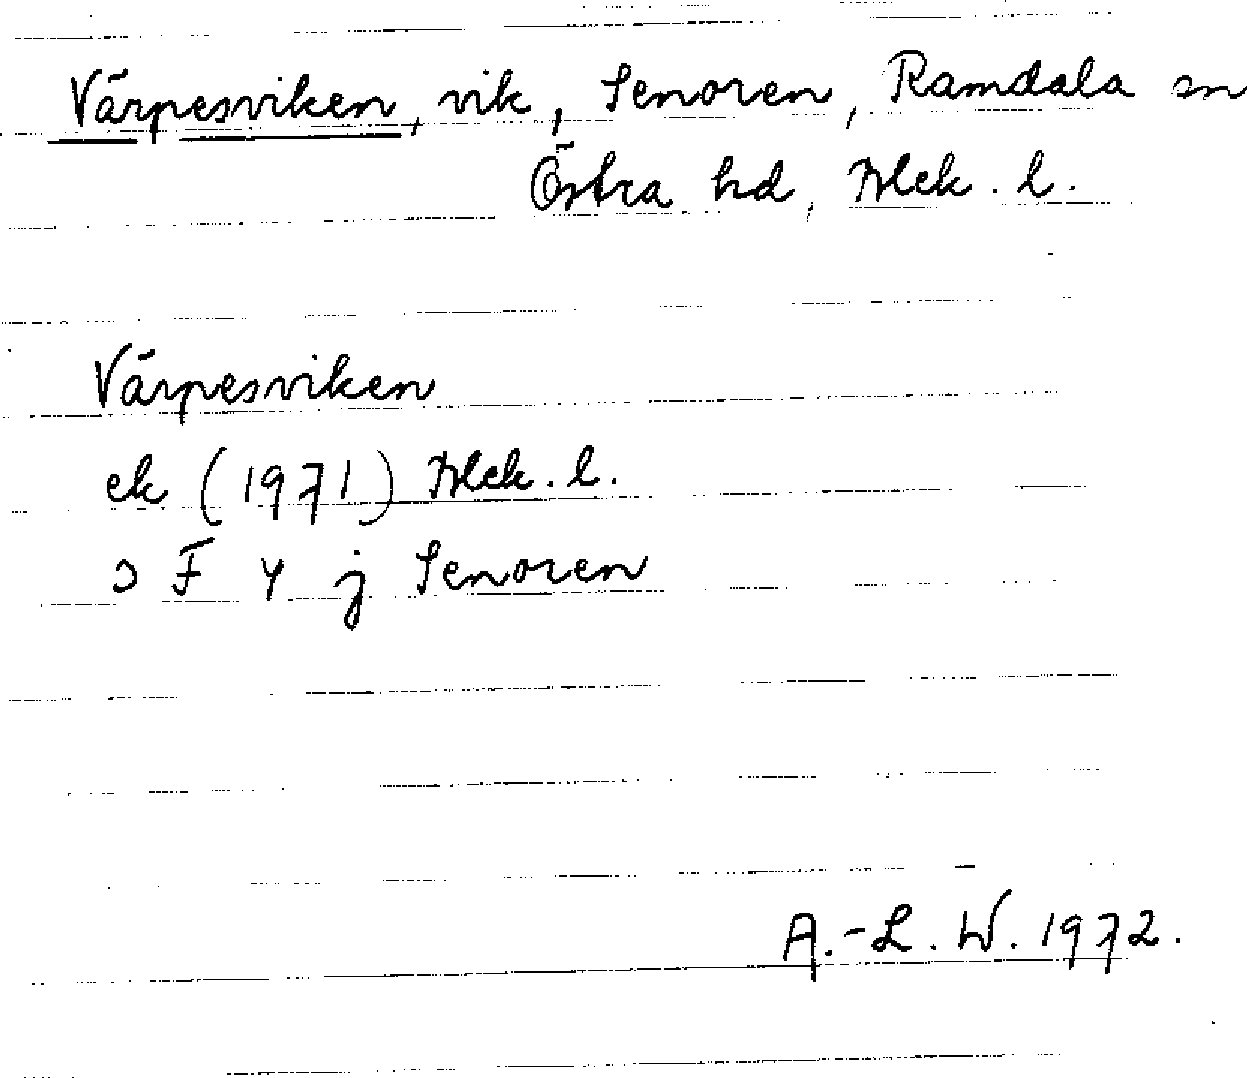 Värpesviken, vik, Senoren, Ramdala sn
Östra hd, Blek. l.
Värpesviken
ek (1971) Blek. l.
3 F 4 j Senoren
A.-L. W. 1972.